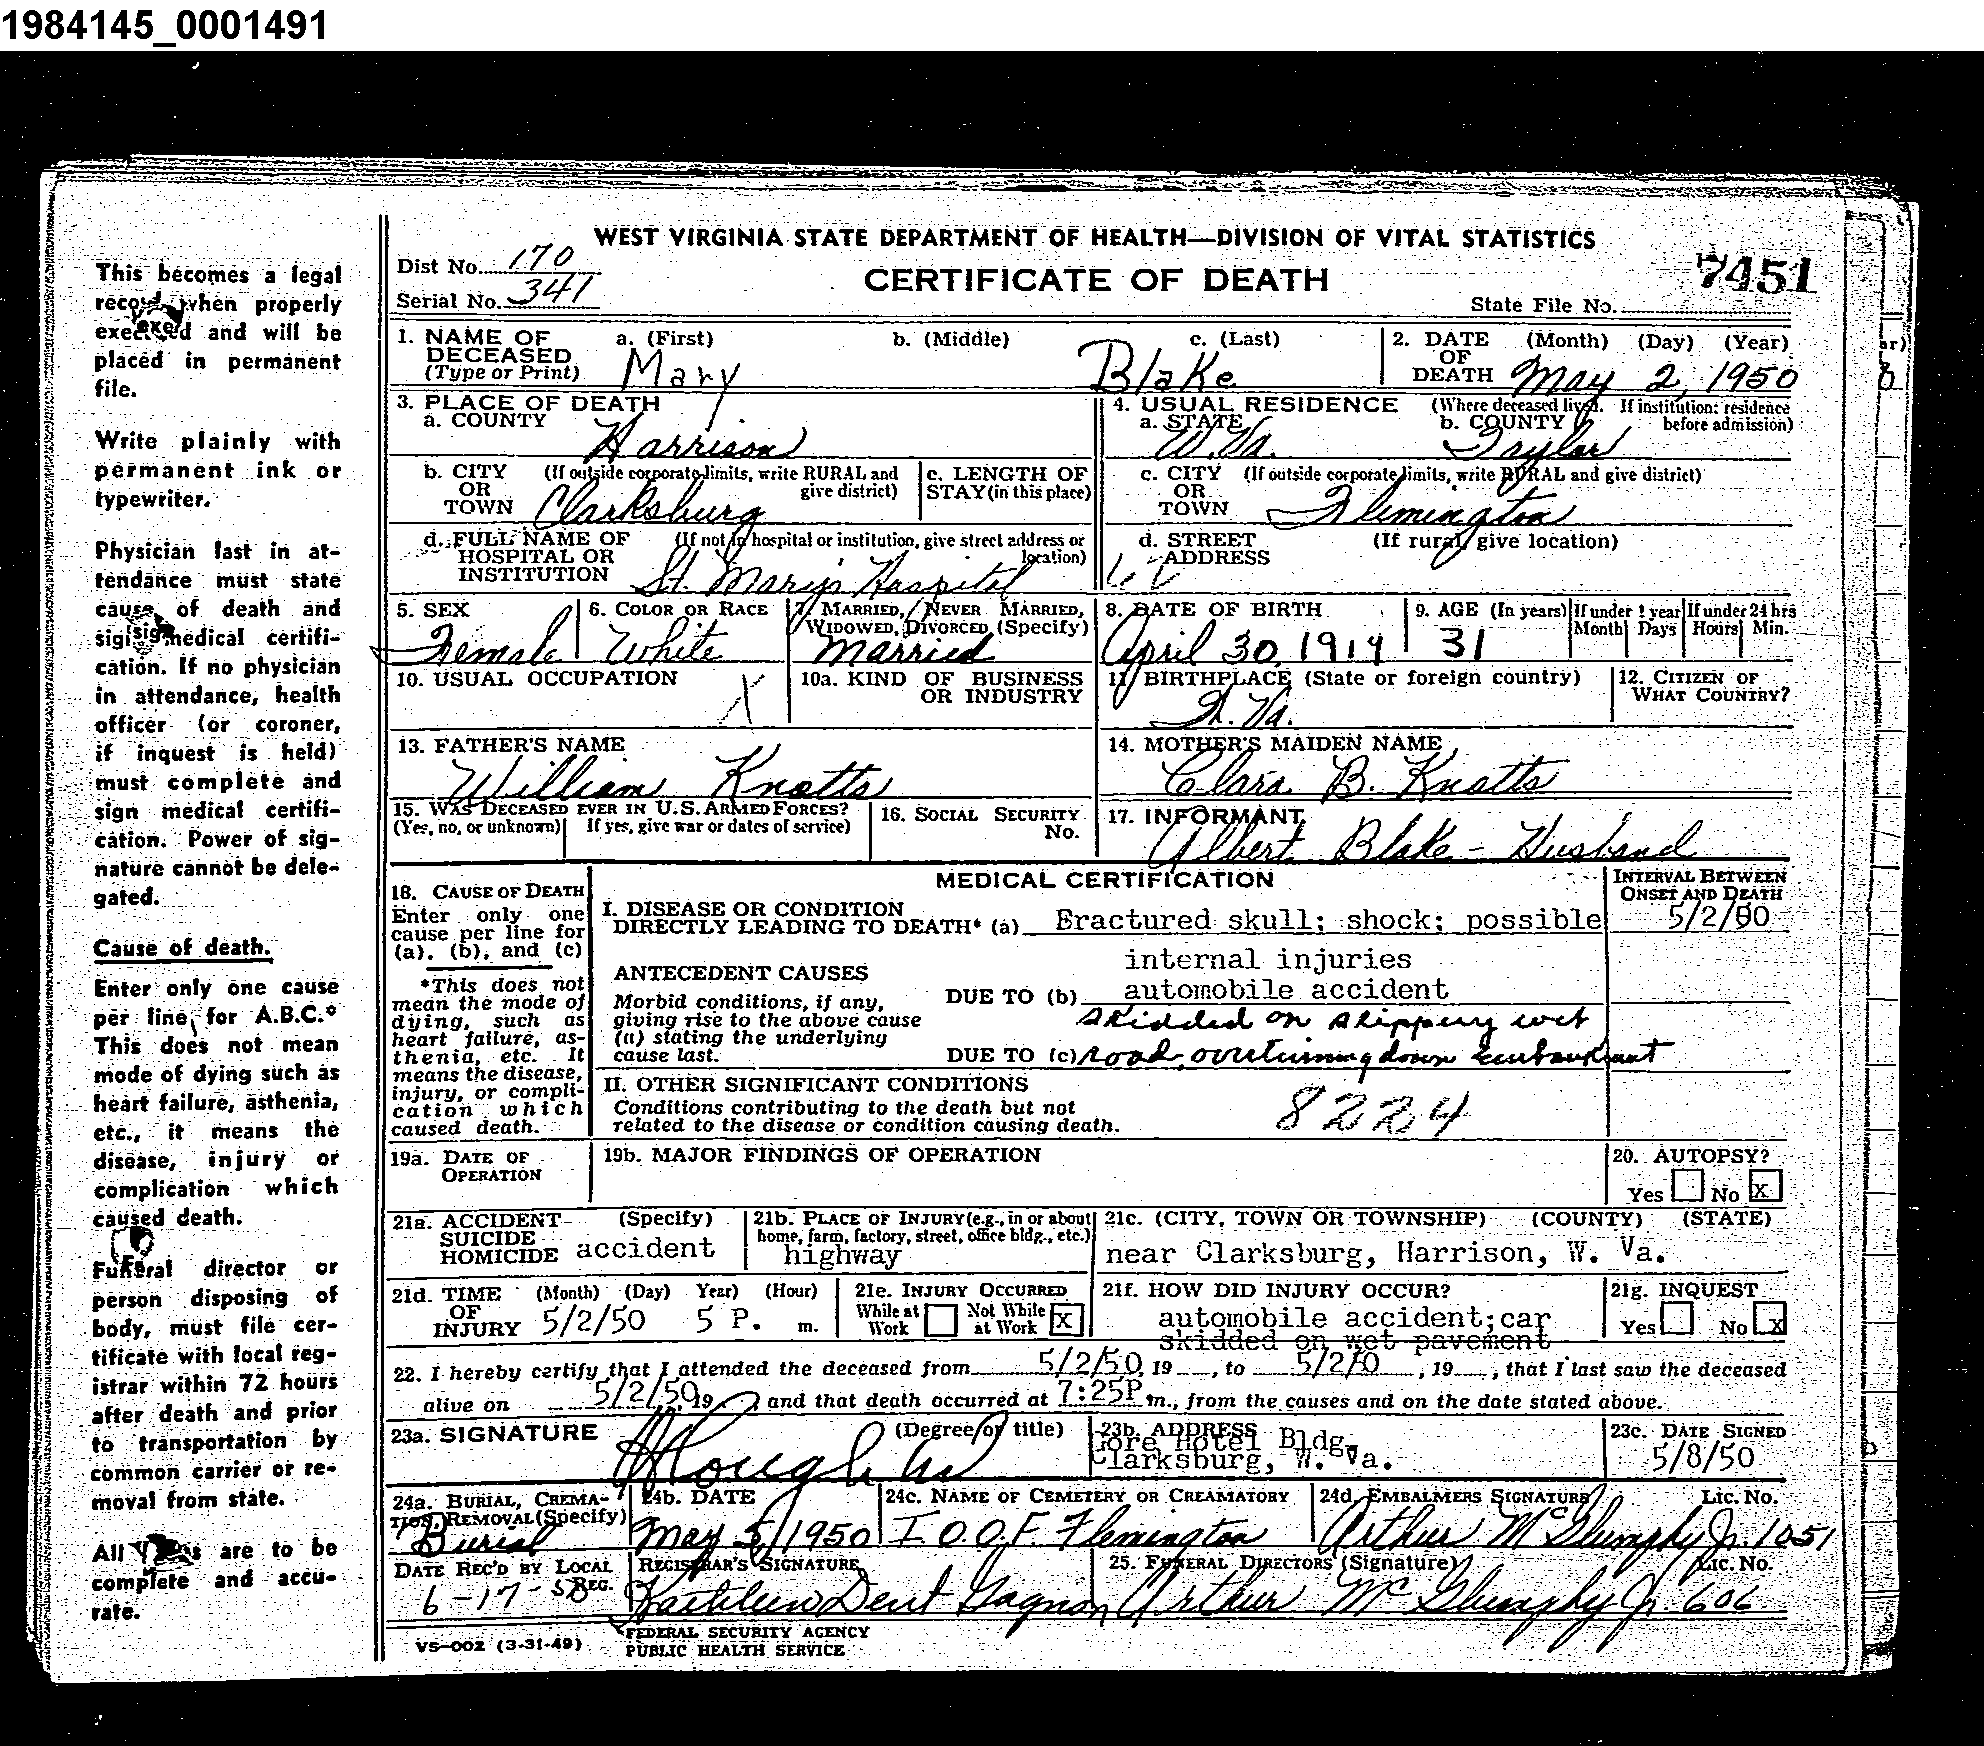 1984145_0001491
This becomes a legal
record when properly
executed and will be
placed in permanent
file.
Write plainly with
permanent ink or
typewriter.
Physician last in at-
tendance must state
cause of death and
sign medical certifi-
cation. If no physician
in attendance, health
officer (or coroner,
if inquest is held)
must complete and
sign medical certifi-
cation. Power of sig-
nature cannot be dele-
gated.
Cause of death.
Enter only one cause
per line for A.B.C.*
This does not mean
mode of dying such as
heart failure, asthenia,
etc., it means the
disease, injury or
complication which
caused death.
Funeral director or
person disposing of
body, must file cer-
tificate with local reg-
istrar within 72 hours
after death and prior
to transportation by
common carrier or re-
moval from state.
All are to be
complete and accu-
rate.
WEST VIRGINIA STATE DEPARTMENT OF HEALTH—DIVISION OF VITAL STATISTICS
Dist No. 170
CERTIFICATE OF DEATH
7451
Serial No. 341
State File No.
1. NAME OF DECEASED (Type or Print) a. (First) b. (Middle) c. (Last)
Mary Blake
2. DATE OF DEATH (Month) (Day) (Year)
May 2, 1950
3. PLACE OF DEATH
a. COUNTY
Harrison
4. USUAL RESIDENCE (Where deceased lived. If institution: residence before admission)
a. STATE b. COUNTY
W. Va. Taylor
b. CITY OR TOWN (If outside corporate limits, write RURAL and give district)
Clarksburg
c. LENGTH OF STAY (in this place)
c. CITY OR TOWN (If outside corporate limits, write RURAL and give district)
Flemington
d. FULL NAME OF HOSPITAL OR INSTITUTION (If not in hospital or institution, give street address or location)
St. Mary's Hospital
d. STREET ADDRESS (If rural, give location)
5. SEX
Female
6. COLOR OR RACE
White
7. MARRIED, NEVER MARRIED, WIDOWED, DIVORCED (Specify)
Married
8. DATE OF BIRTH
April 30, 1914
9. AGE (In years) If under 1 year Month Days If under 24 hrs Hours Min.
31
10. USUAL OCCUPATION
X
10a. KIND OF BUSINESS OR INDUSTRY
11. BIRTHPLACE (State or foreign country)
W. Va.
12. CITIZEN OF WHAT COUNTRY?
13. FATHER'S NAME
William Knotts
14. MOTHER'S MAIDEN NAME
Clara B. Knotts
15. WAS DECEASED EVER IN U.S. ARMED FORCES?
(Yes, no, or unknown) If yes, give war or dates of service)
16. SOCIAL SECURITY No.
17. INFORMANT
Albert Blake - Husband
18. CAUSE OF DEATH
Enter only one
cause per line for
(a), (b), and (c)
*This does not
mean the mode of
dying, such as
heart failure, as-
thenia, etc. It
means the disease,
injury, or compli-
cation which
caused death.
MEDICAL CERTIFICATION
INTERVAL BETWEEN ONSET AND DEATH
I. DISEASE OR CONDITION
DIRECTLY LEADING TO DEATH* (a) Fractured skull; shock; possible 5/2/50
internal injuries
ANTECEDENT CAUSES
Morbid conditions, if any,
giving rise to the above cause
(a) stating the underlying
cause last.
DUE TO (b) automobile accident
skidded on slippery wet
DUE TO (c) road, overturning down embankment
II. OTHER SIGNIFICANT CONDITIONS
Conditions contributing to the death but not
related to the disease or condition causing death.
8224
19a. DATE OF OPERATION
19b. MAJOR FINDINGS OF OPERATION
20. AUTOPSY?
Yes No X
21a. ACCIDENT SUICIDE HOMICIDE (Specify)
accident
21b. PLACE OF INJURY (e.g., in or about home, farm, factory, street, office bldg., etc.)
highway
21c. (CITY, TOWN OR TOWNSHIP) (COUNTY) (STATE)
near Clarksburg, Harrison, W. Va.
21d. TIME OF INJURY (Month) (Day) Year) (Hour)
5/2/50 5 P. m.
21e. INJURY OCCURRED
While at Work Not While at Work X
21f. HOW DID INJURY OCCUR?
automobile accident;car
skidded on wet pavement
21g. INQUEST
Yes No X
22. I hereby certify that I attended the deceased from 5/2/50, 19 , to 5/2/0 , 19 , that I last saw the deceased
alive on 5/2/50, 19 , and that death occurred at 7:25P.m., from the causes and on the date stated above.
23a. SIGNATURE (Degree or title)
23b. ADDRESS
Gore Hotel Bldg.
Clarksburg, W. Va.
23c. DATE SIGNED
5/8/50
24a. BURIAL, CREMATION, REMOVAL (Specify)
Burial
24b. DATE
May 5, 1950
24c. NAME OF CEMETERY OR CREAMATORY
I.O.O.F. Flemington
24d. EMBALMERS SIGNATURE Lic. No.
Arthur McGlumphy Jr. 1051
DATE REC'D BY LOCAL REG.
6-17-50
REGISTRAR'S SIGNATURE
Kathleen Dent Gagnon
25. FUNERAL DIRECTORS (Signature) Lic. No.
Arthur McGlumphy Jr. 606
VS-002 (3-31-49)
FEDERAL SECURITY AGENCY
PUBLIC HEALTH SERVICE